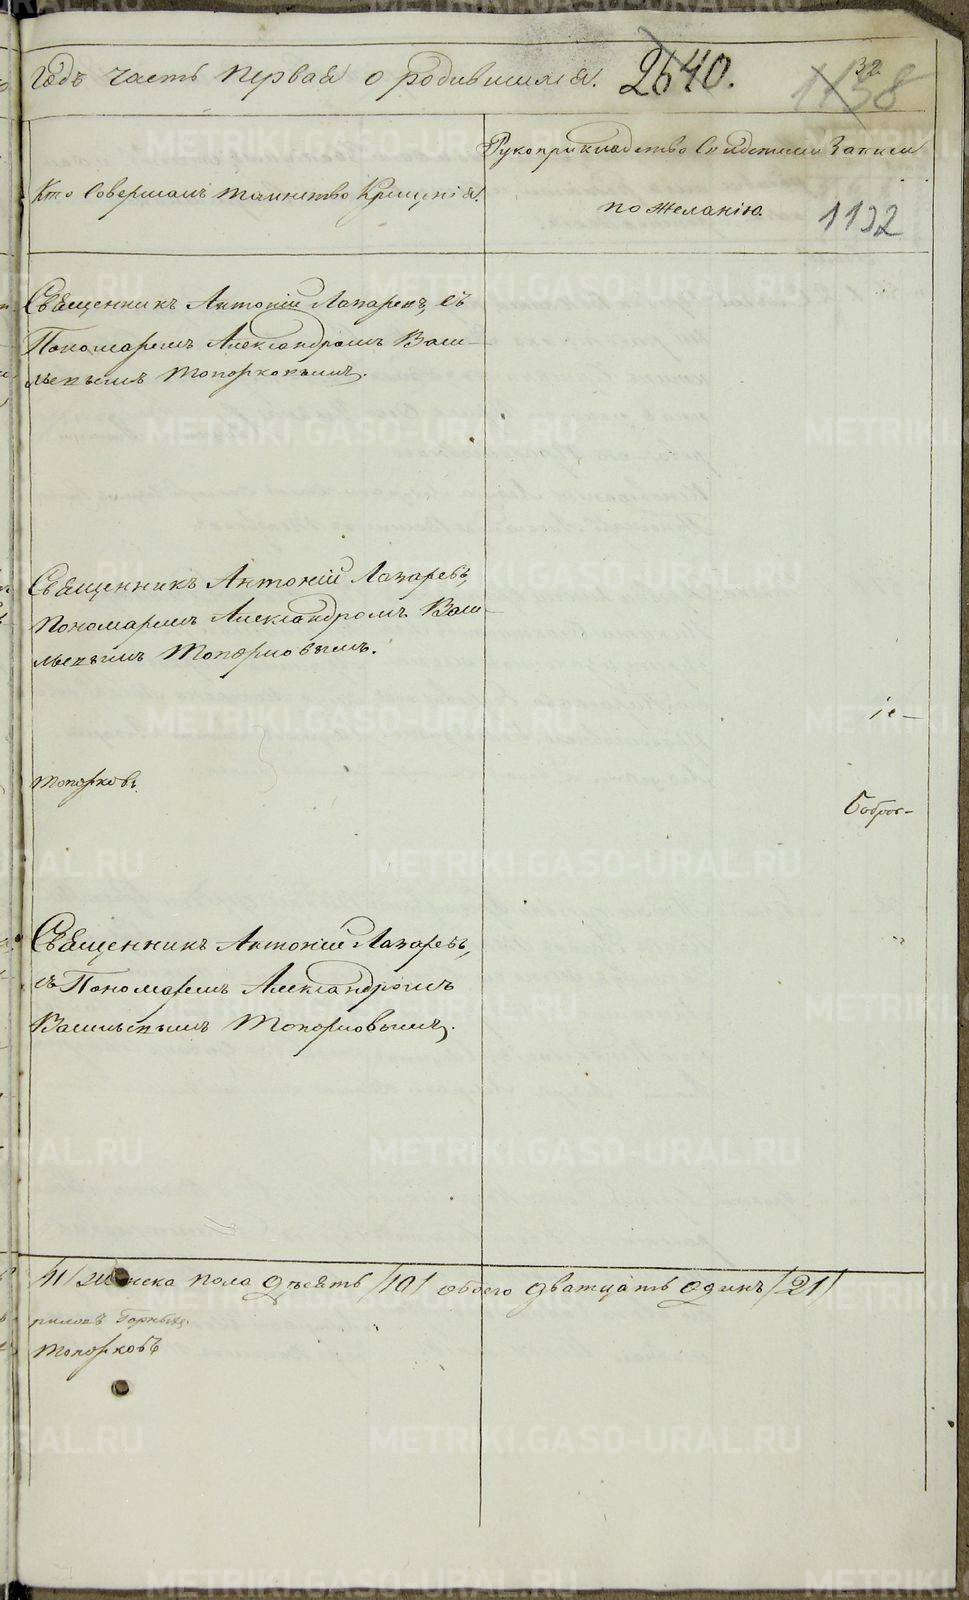 Годъ часть первая о родившихся. 2640. 32
1138
Кто совершалъ таинство Крещенія.
Рукоприкладство свидетелей записи
по желанію. 1132
Священникъ Антоній Лазаревъ, съ
Пономаремъ Александромъ Васи-
льевымъ Топорковымъ.
Священникъ Антоній Лазаревъ,
Пономаремъ Александромъ Васи-
льевымъ Топорковымъ.
іе-
Топорковъ.
Бобров-
Священникъ Антоній Лазаревъ,
съ Пономаремъ Александромъ
Васильевымъ Топорковымъ.
/11/ женска пола дѣсять /10/ обоего дватцать одинъ /21/
Топорковъ
METRIKI.GASO-URAL.RU